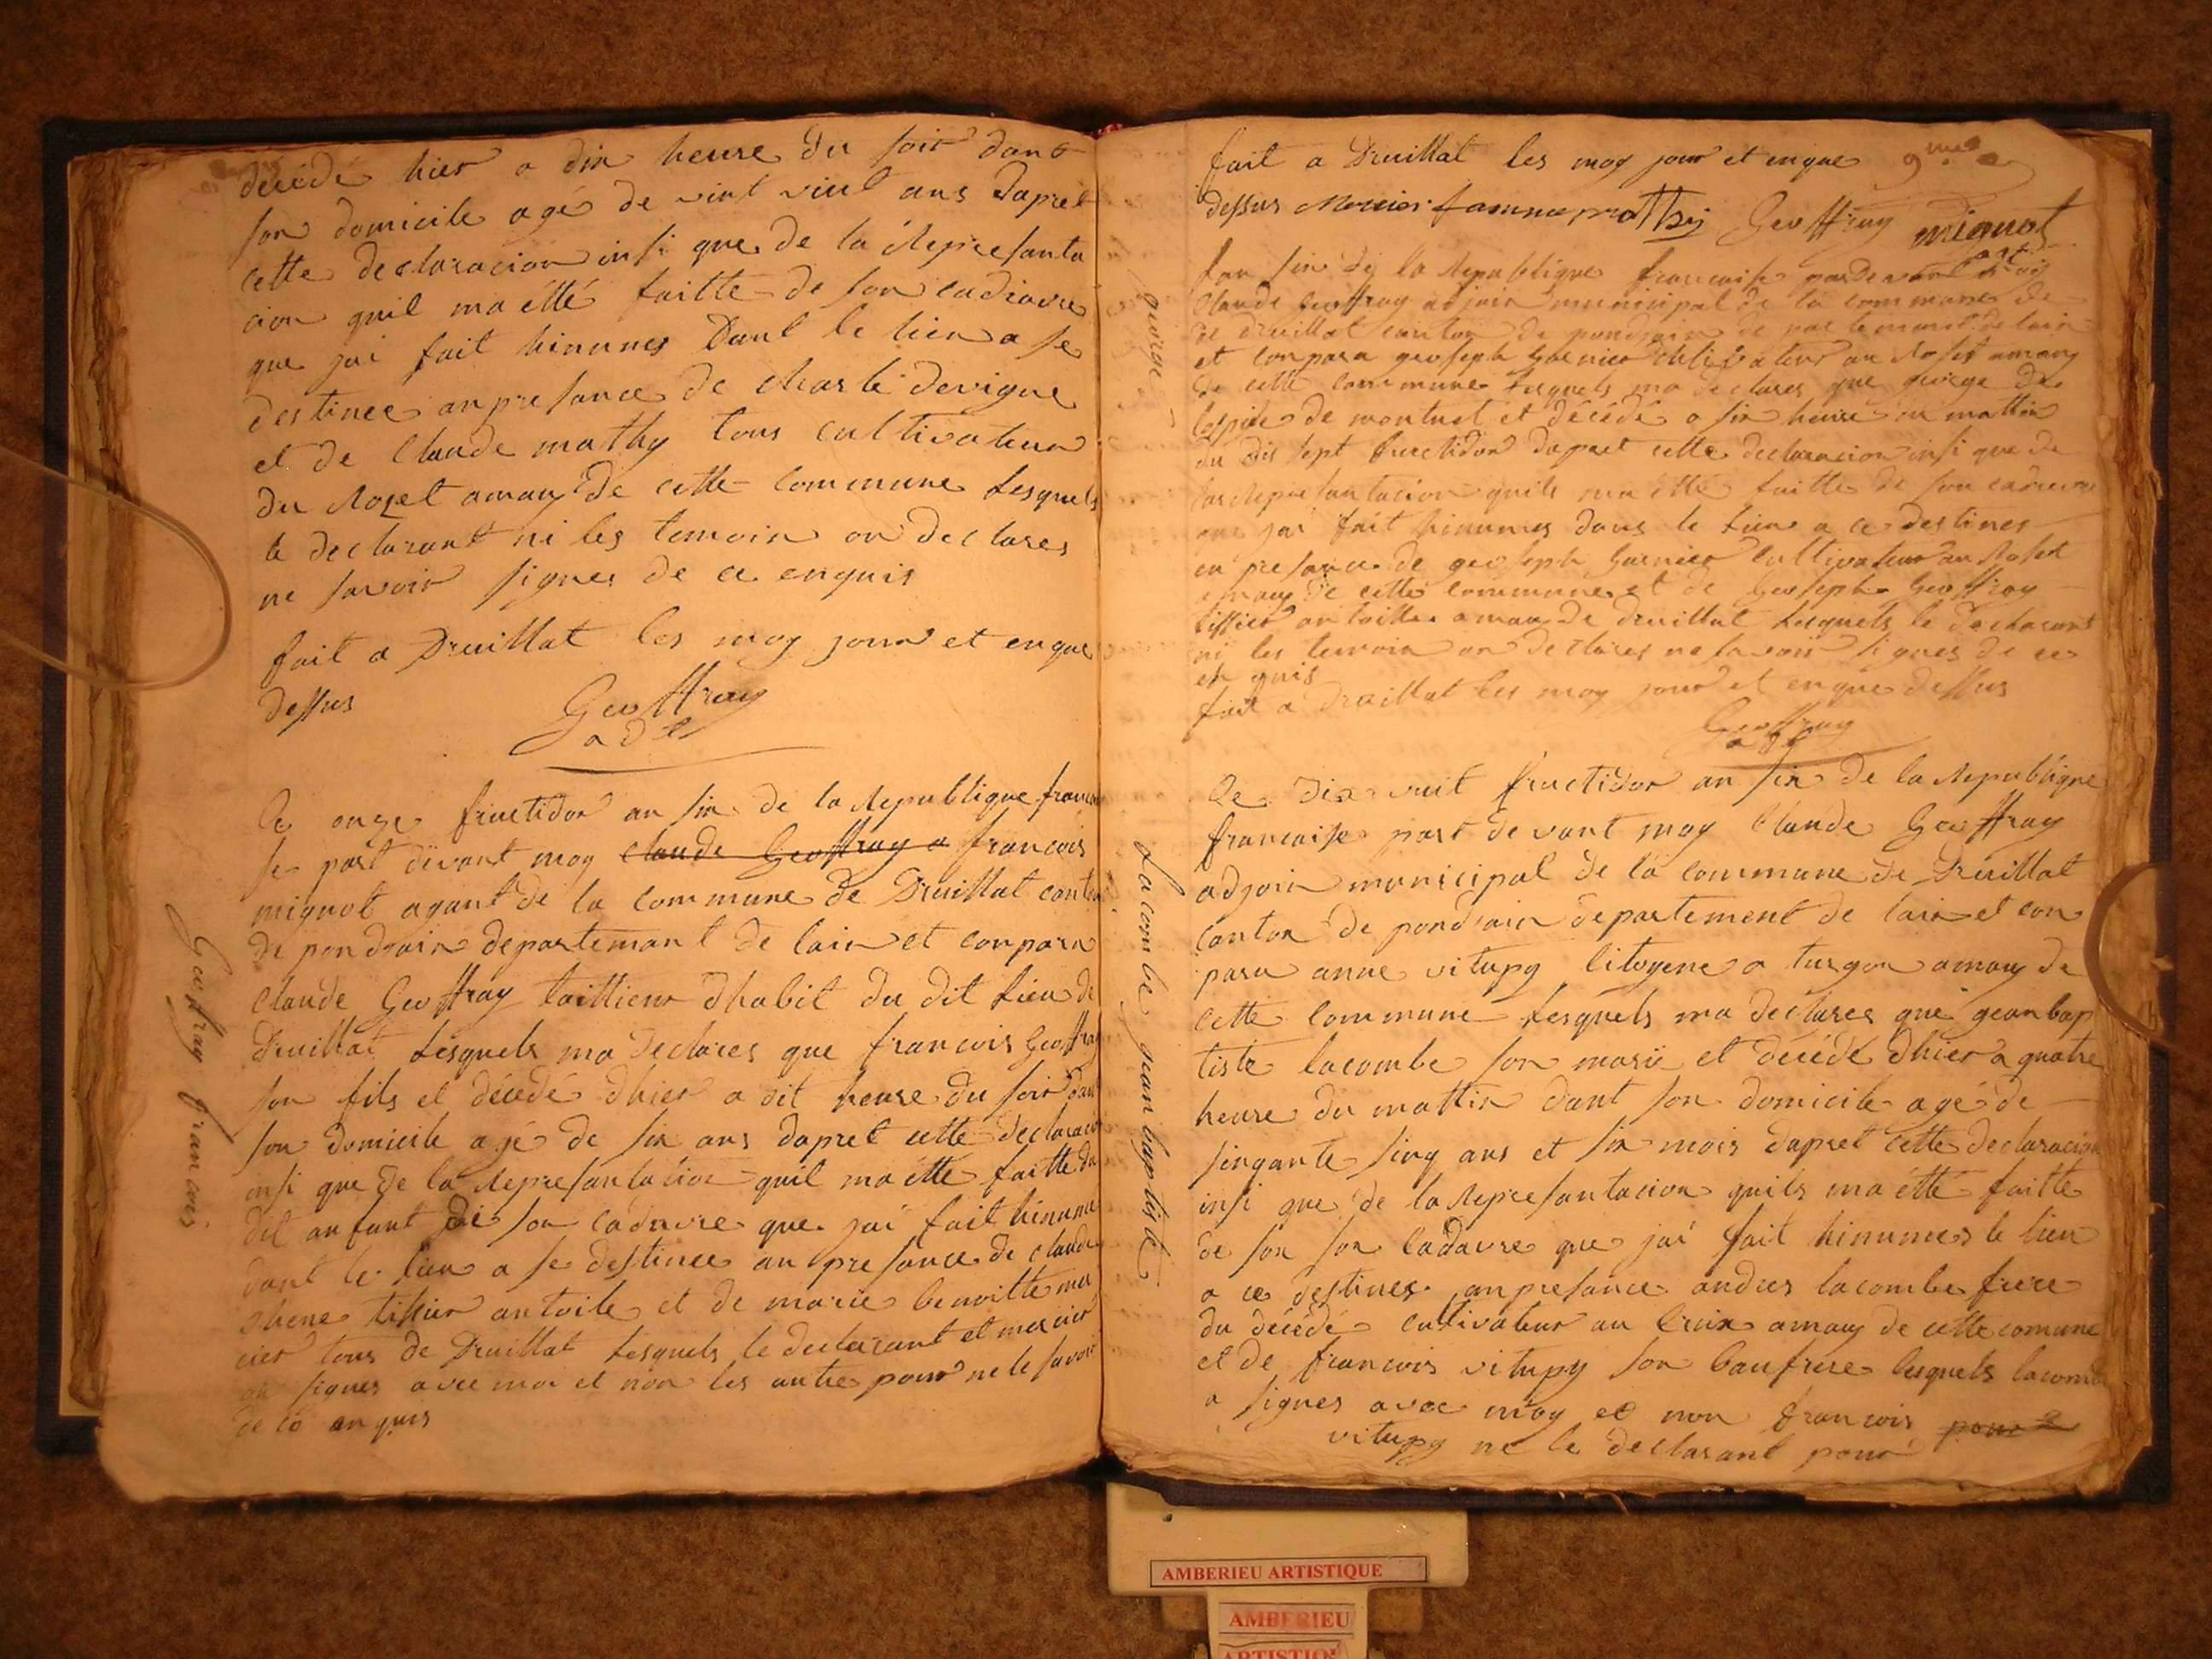 decedé hier a dix heure du soir dant
son domicile agé de vint vint ans dapret
cette declaracion insi que de la Representa
cion quil ma étté faitte de son cadravre
que jai fait hinumes Dant le lien a se
destinee anpresance de charle devigne
et de Claude mathy tous cultivateur
du Rozet amau de cette commune Lesquels
le declarant ni les temoin on declares
ne savoir signes de ce enquis
fait a Druillat les moy jour et enque
dessus
Geoffray
adt
Ce onze fructidor an six de la Republique francai
se part devant moy claude Geoffray a francois
mignot agant de la commune de Druillat canton
de pondain departemant de lain et conparu
Claude Geoffray taillieur dhabit du dit lieu de
Druillat Lesquels ma declares que francois Geoffray
son fils et décedé dhier a dit heure du soir dant
son domicile agé de six ans dapret cette declaracion
insi que de la Representation quil ma étté faitte du
dit anfant de son cadavre que jai fait hinume
dant le lieu a se destinee an presance de claude
chene tissier antoile et de marie benoitte mer
cier tous de Druillat Lesquels le declarant et mercier
on signes avec moi et non les autre pour ne le savoir
de ce anquis
Geoffray francois
fait a Druillat les moy jour et enque
dessus Mercier famme prothy Geoffray mignot
agt
lan six de la Republique francaise pardevant moy
Claude Geoffray adjoin municipal de la commune de
de druillat canton de pondain de partemant de lain
et conparu geoseph Garnier cultivateur au Roset amau
de cette commune Lesquels ma declares que george de
lospice de montuel et décedé a six heure du mattin
du dis sept fructidor dapret cette declaracion insi que de
la Representacion quils ma étté faitte de son cadavre
que jai fait hinumes dans le lieu a ce destines
en presance de geoseph Garnier cultivateur au Roset
amau de cette commune et de Geoseph Geoffray
tissier an toille amau de druillat Lesquels le declarant
ni les temoin on declares ne savoir signes de ce
en quis
fait a druillat les moy jour et enque dessus
Geoffray
adt
george
Ce dix vuit fructidor an six de la Republique
francaise part devant moy Claude Geoffray
adjoin municipal de la commune de Druillat
canton de pondain departement de lain et con
paru anne vitupy Citoyene a turgon amau de
cette commune Lesquels ma declares que gean bap
tiste lacombe son marie et décedé dhier a quatre
heure du mattin dant son domicile agé de
sinqante sinq ans et six mois dapret cette declaracion
insi que de la Representacion quils ma étté faitte
de son son cadavre que jai fait hinumes le lieu
a ce destines anpresance andres lacombe frere
du décédé cultivateur au Croix amau de cette comune
et de francois vitupy son baufrere lesquels lacombe
a signes avec moy et non francois pour
vitupy ne le declarant pour
Lacombe jean baptiste
AMBERIEU ARTISTIQUE
AMBERIEU
ARTISTIQ